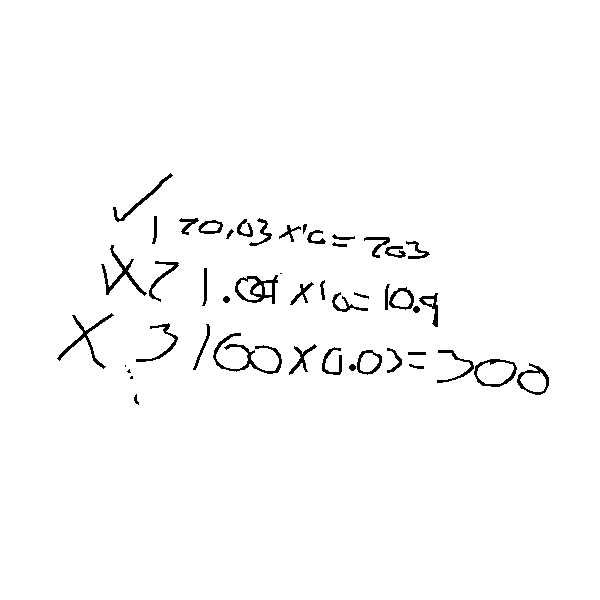 ✓ 1 70,03 x 10 = 703
X 2 1.09 x 10 = 10.9
X 3 100 x 0.03 = 300